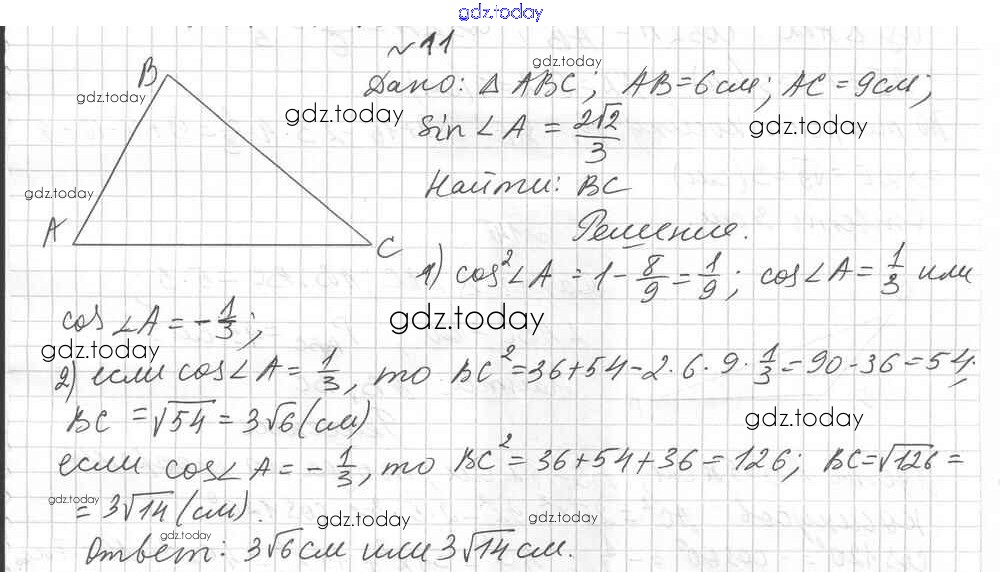 gdz.today
№ 11
Дано: △ ABC; AB = 6 см; AC = 9 см;
sin ∠A = 2√2/3
Найти: BC
Решение.
1) cos²∠A = 1 - 8/9 = 1/9; cos∠A = 1/3 или
cos ∠A = - 1/3;
2) если cos∠A = 1/3, то BC² = 36 + 54 - 2·6·9·1/3 = 90 - 36 = 54;
BC = √54 = 3√6 (см)
если cos∠A = - 1/3, то BC² = 36 + 54 + 36 = 126; BC = √126 =
= 3√14 (см).
Ответ: 3√6 см или 3√14 см.
B
A
C
gdz.today
gdz.today
gdz.today
gdz.today
gdz.today
gdz.today
gdz.today
gdz.today
gdz.today
gdz.today
gdz.today
gdz.today